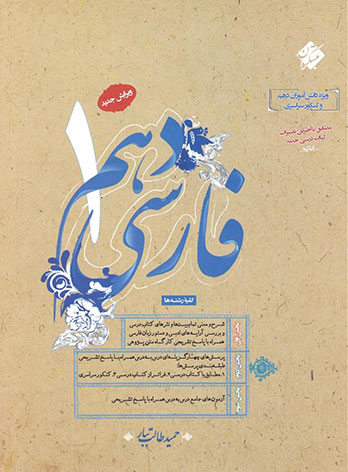 مبتکران
ویژه دانش‌آموزان دهم
و کنکور سراسری
مطابق با آخرین تغییرات
کتاب درسی جدید
ویرایش جدید
فارسی دهم ۱
کلیهٔ رشته‌ها
شرح و معنی تمام بیت‌ها و نثرهای کتاب درسی
و بررسی آرایه‌های ادبی و دستور زبان فارسی
همراه با پاسخ تشریحی کارگاه متن پژوهی
پرسش‌های چهارگزینه‌ای درس به درس همراه با پاسخ تشریحی
طبقه‌بندی پرسش‌ها:
۱. مطابق با کتاب درسی ۲. فراتر از کتاب درسی ۳. کنکور سراسری
آزمون‌های جامع درس به درس همراه با پاسخ تشریحی
حمید طالب تبار